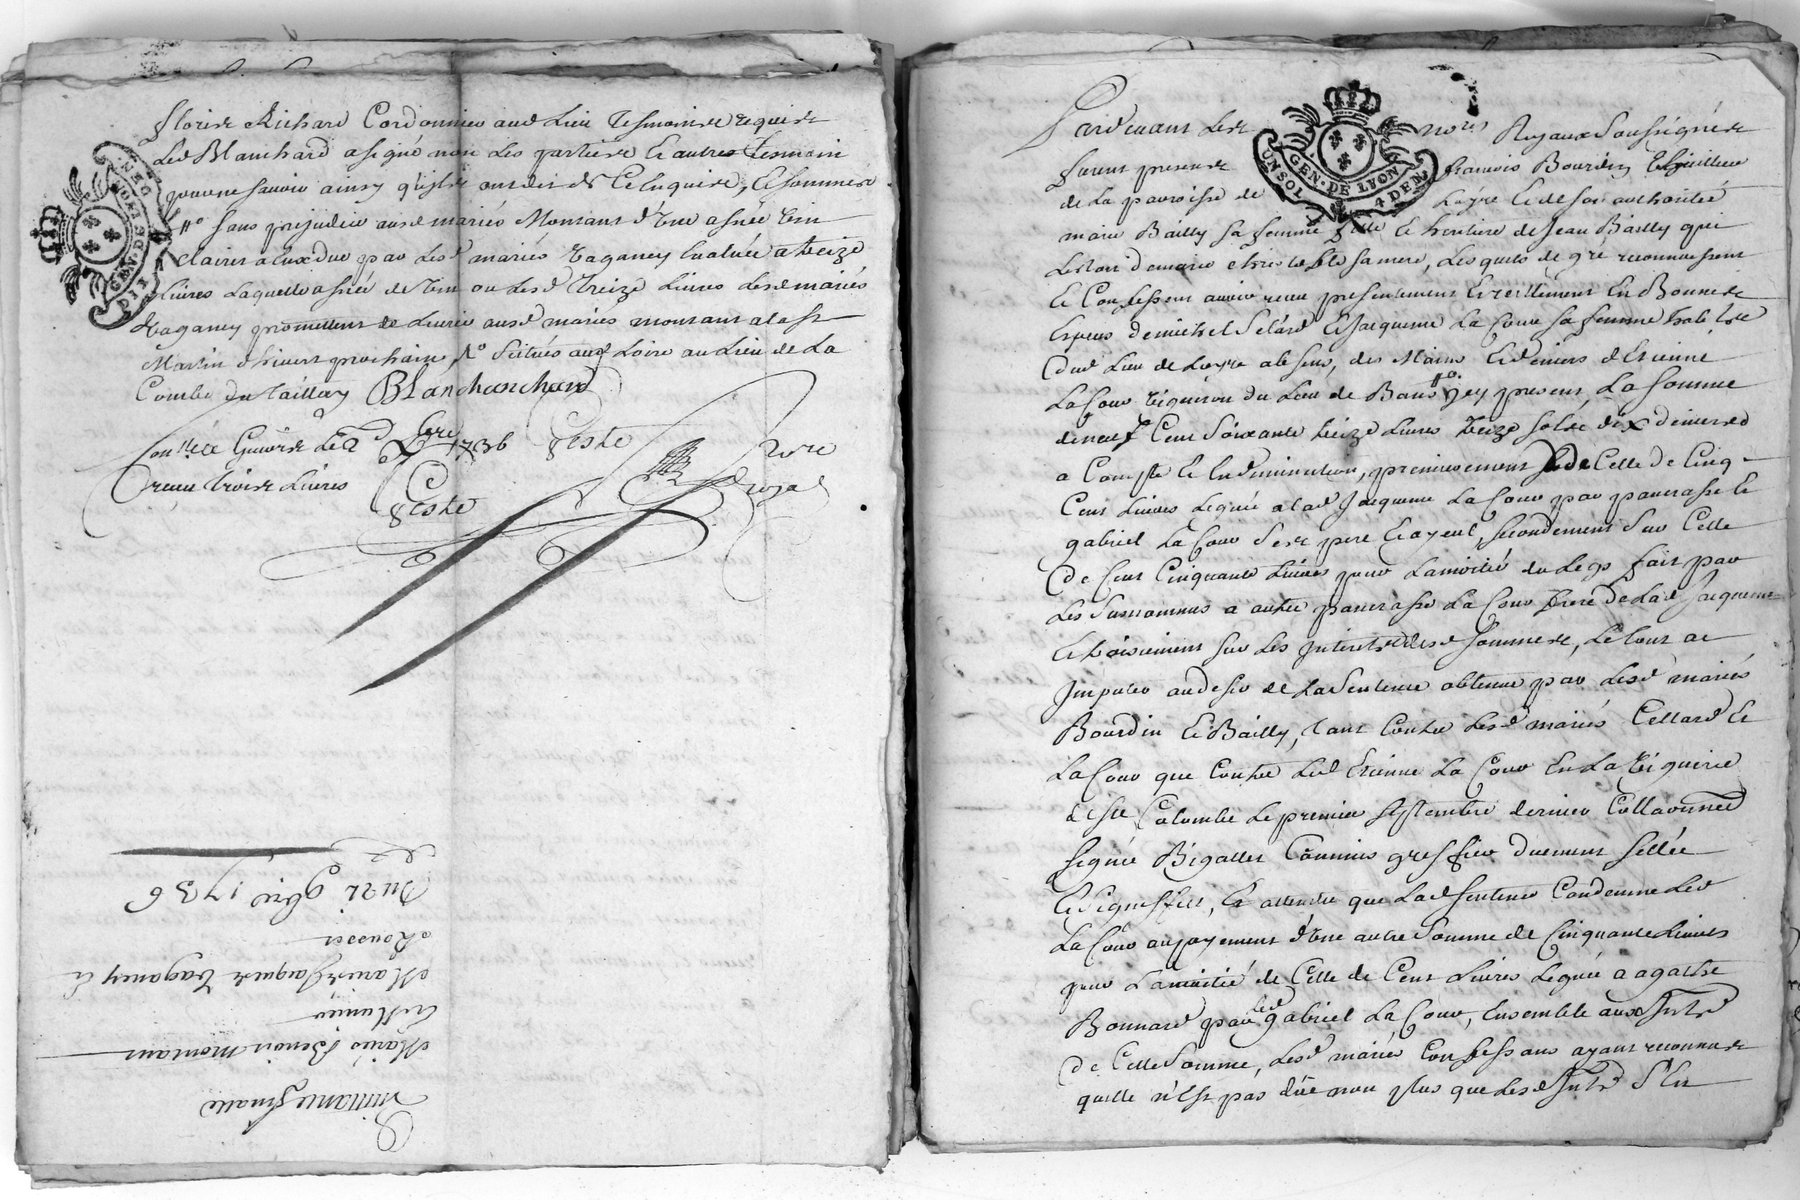 floris Richard Cordonnier aud Lieu tesmoins requis
Led Blanchard a signé non les parties et autres tesmoin
pour ne savoir ainsy qu'ils ont dit de ce enquis, et sommés
sans prejudice ausd mariés Montant d'une asnée vin
clairet a eux due par lesd mariés Taganey evaluée a treize
Livres laquelle asnée de vin ou lesd treize Livres lesd mariés
Taganey promettent de livrer ausd mariés montant a la st
Martin d'hiver prochain, situés aud Loire au Lieu de La
Combe du taillay Blanchanchard
Conllé a le 2d xbre 1736 Geste
Nore
reçu trois Livres
Geste
Royal
GEN. DE LYON
Quittance finale
Mariés Benoit montant
et Munier
Mariés Jaques Taganey et
Rousset
Du 21 9bre 1736
Pardevant les nores Royaux soussignés
GEN. DE LYON
UN SOL 4 DEN
furent presents francois Bourdin
de la parroisse de Layre et de son authorité
marie Bailly sa femme fille et heritiere de Jean Bailly qui
l'estoit de marie sa mere, lesquels de gré reconnaissent
et Confessent avoir receu presentement et reellement en Bonnes
Especes de michel Celard et Jacqueme La Cour sa femme habitants
dud Lieu de Layre absens, des Mains et deniers d'Etienne
La Cour vigneron du Lieu de present, La somme
de neuf Cent soixante treize Livres treize sols dix deniers
a Compte et en diminution, premierement de Celle de Cinq
Cent Livres leguée a lad Jacqueme La Cour par pancrasse et
gabriel La Cour ses pere et ayeul, secondement sur Celle
de Cent Cinquante Livres pour la moitié du legs fait par
les susnommés a autre pancrasse La Cour frere de lad Jacqueme
et troisiement sur les Interets desd sommes, le tout a
Imputer au desir de la sentence obtenue par lesd mariés
Bourdin et Bailly, tant contre lesd mariés Cellard et
La Cour que contre led Etienne La Cour en la viguerie
de ste Colombe le premier septembre dernier Collationnée
signée Bigallet Commis greffier duement sellée
et signiffiée, et attendu que lad sentence condamne led
La Cour au payement d'une autre somme de Cinquante Livres
pour la moitié de Celle de Cent Livres leguée a agathe
Bonnard par led gabriel La Cour, ensemble aux Intts
de Celle somme, lesd mariés Confessans ayant reconnus
quelle n'est pas düe non plus que lesd Intts s'en